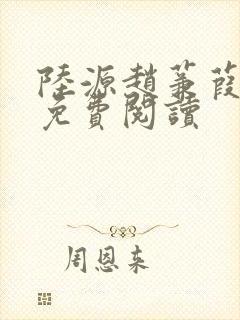 陸源趙蒹葭
免費閱讀
周恩来